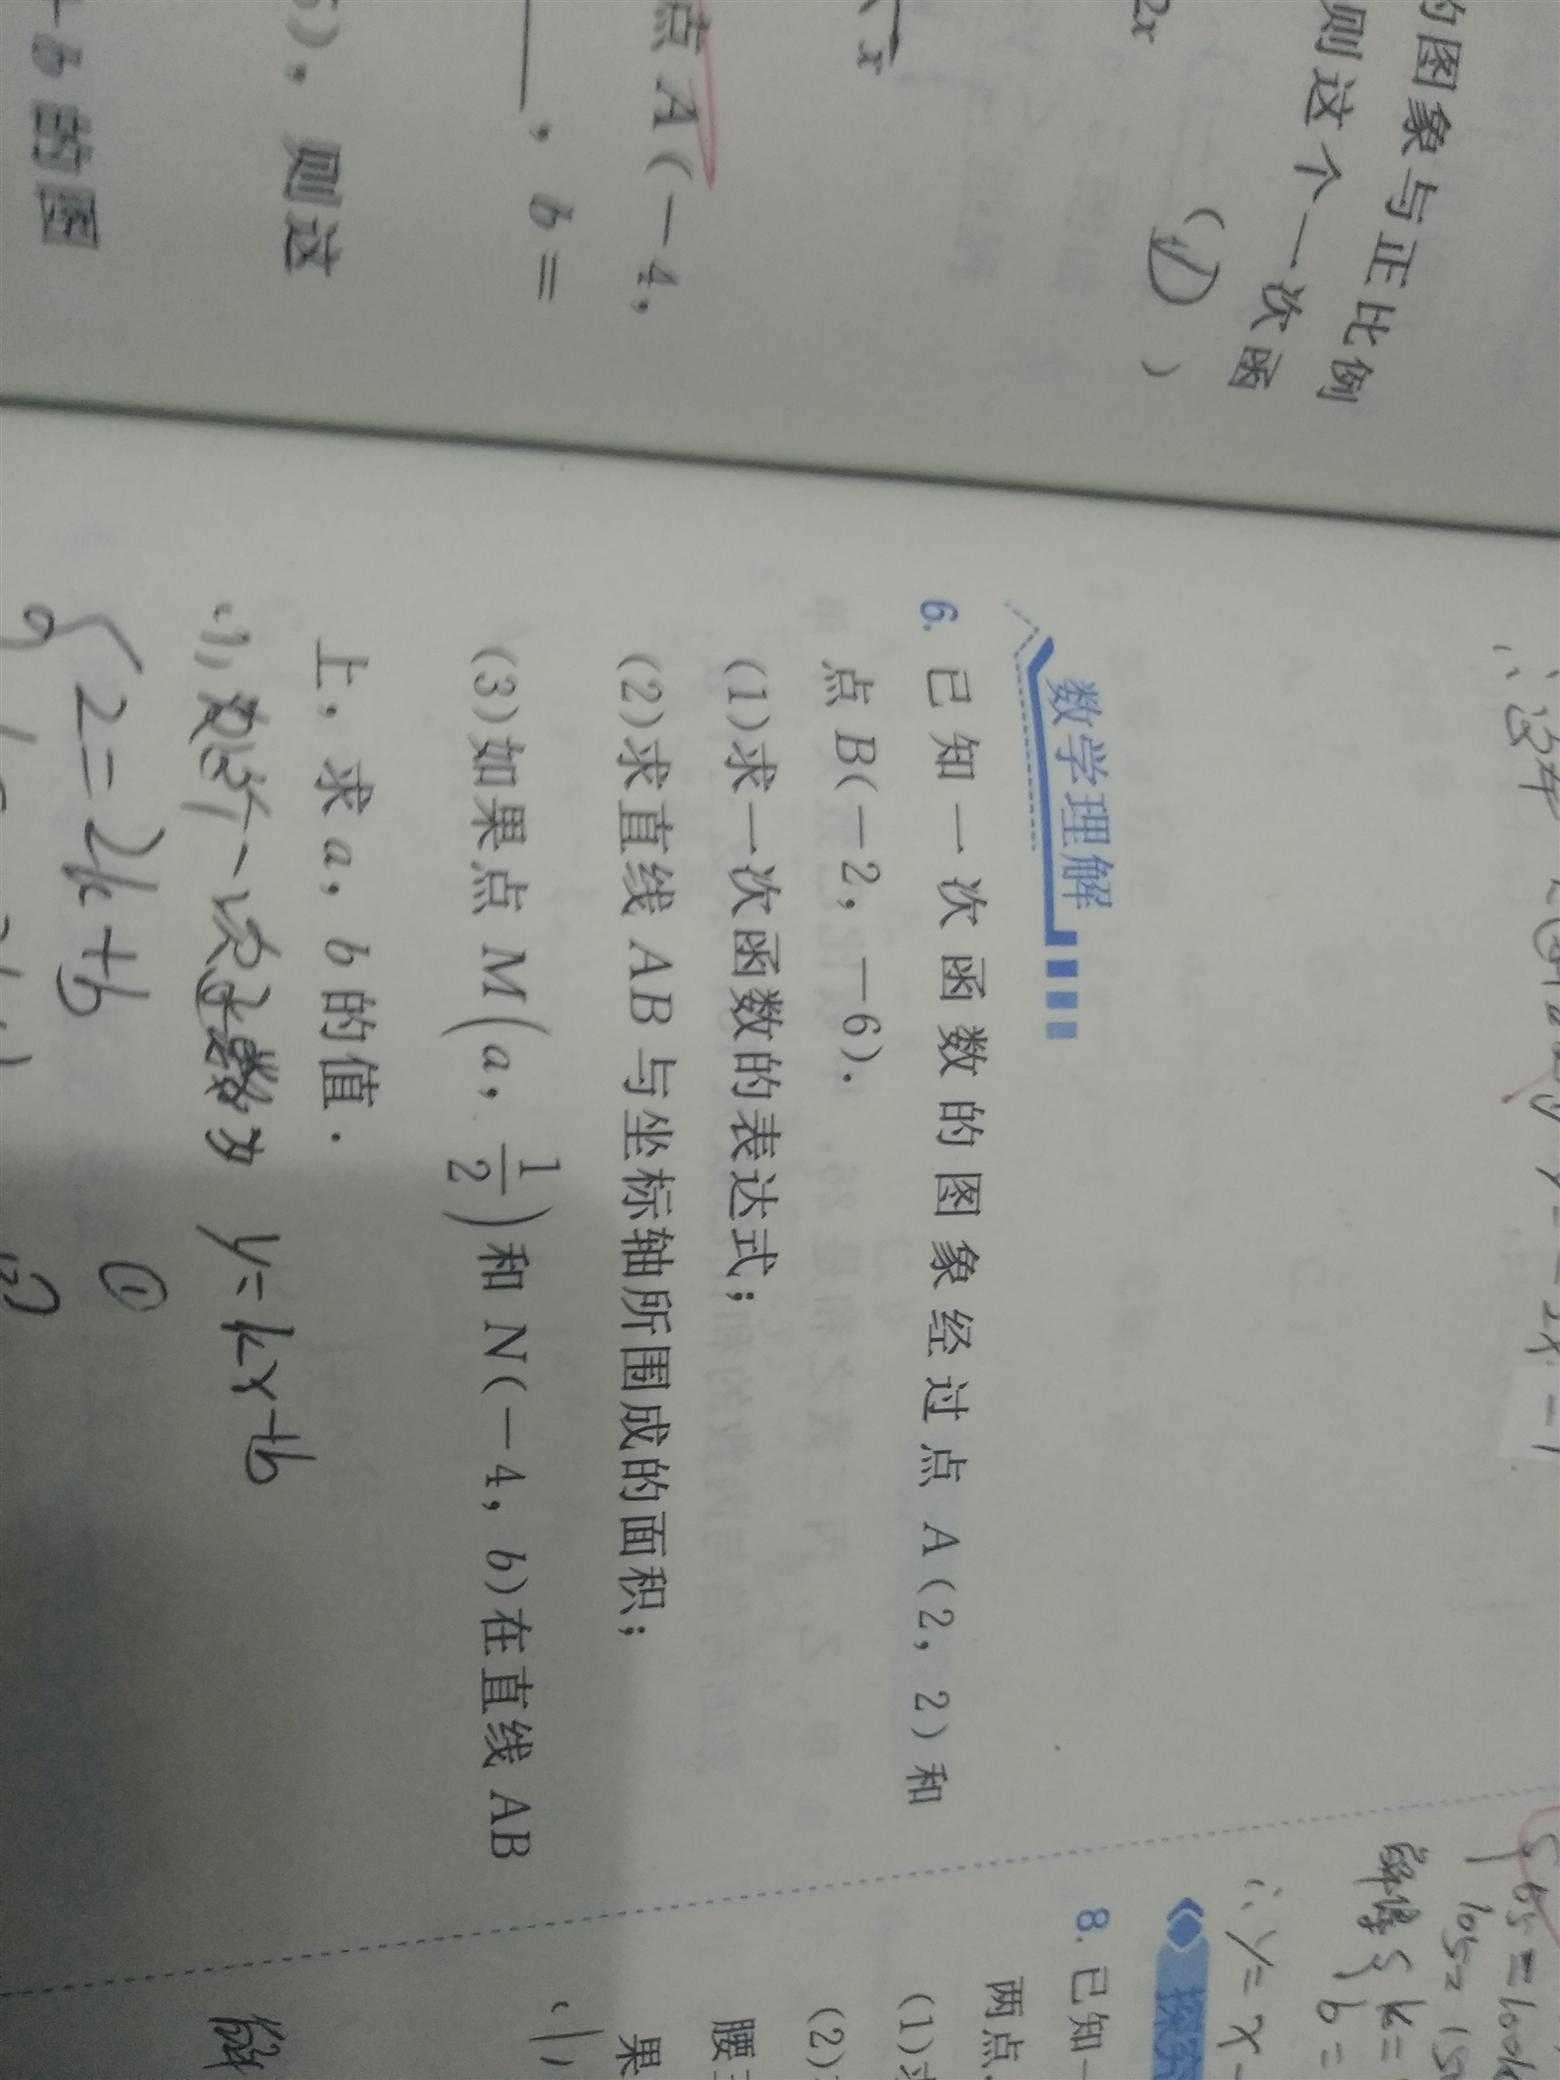 的图象与正比例
则这个一次函
2x
(D)
x
点 A(-4,
, b=
), 则这
b 的图
y=-2x-1
数学理解
6. 已知一次函数的图象经过点 A(2, 2)和
点 B(-2, -6).
(1)求一次函数的表达式;
(2)求直线 AB 与坐标轴所围成的面积;
(3)如果点 M(a, 1/2)和 N(-4, b)在直线 AB
上, 求 a, b 的值.
(1)
一次函数为 y=kx+b
2=2k+b ①
解得 k=
b=
∴y=x-
探究
8. 已知一
两点
(1)求
(2)
腰
果
(1)
解